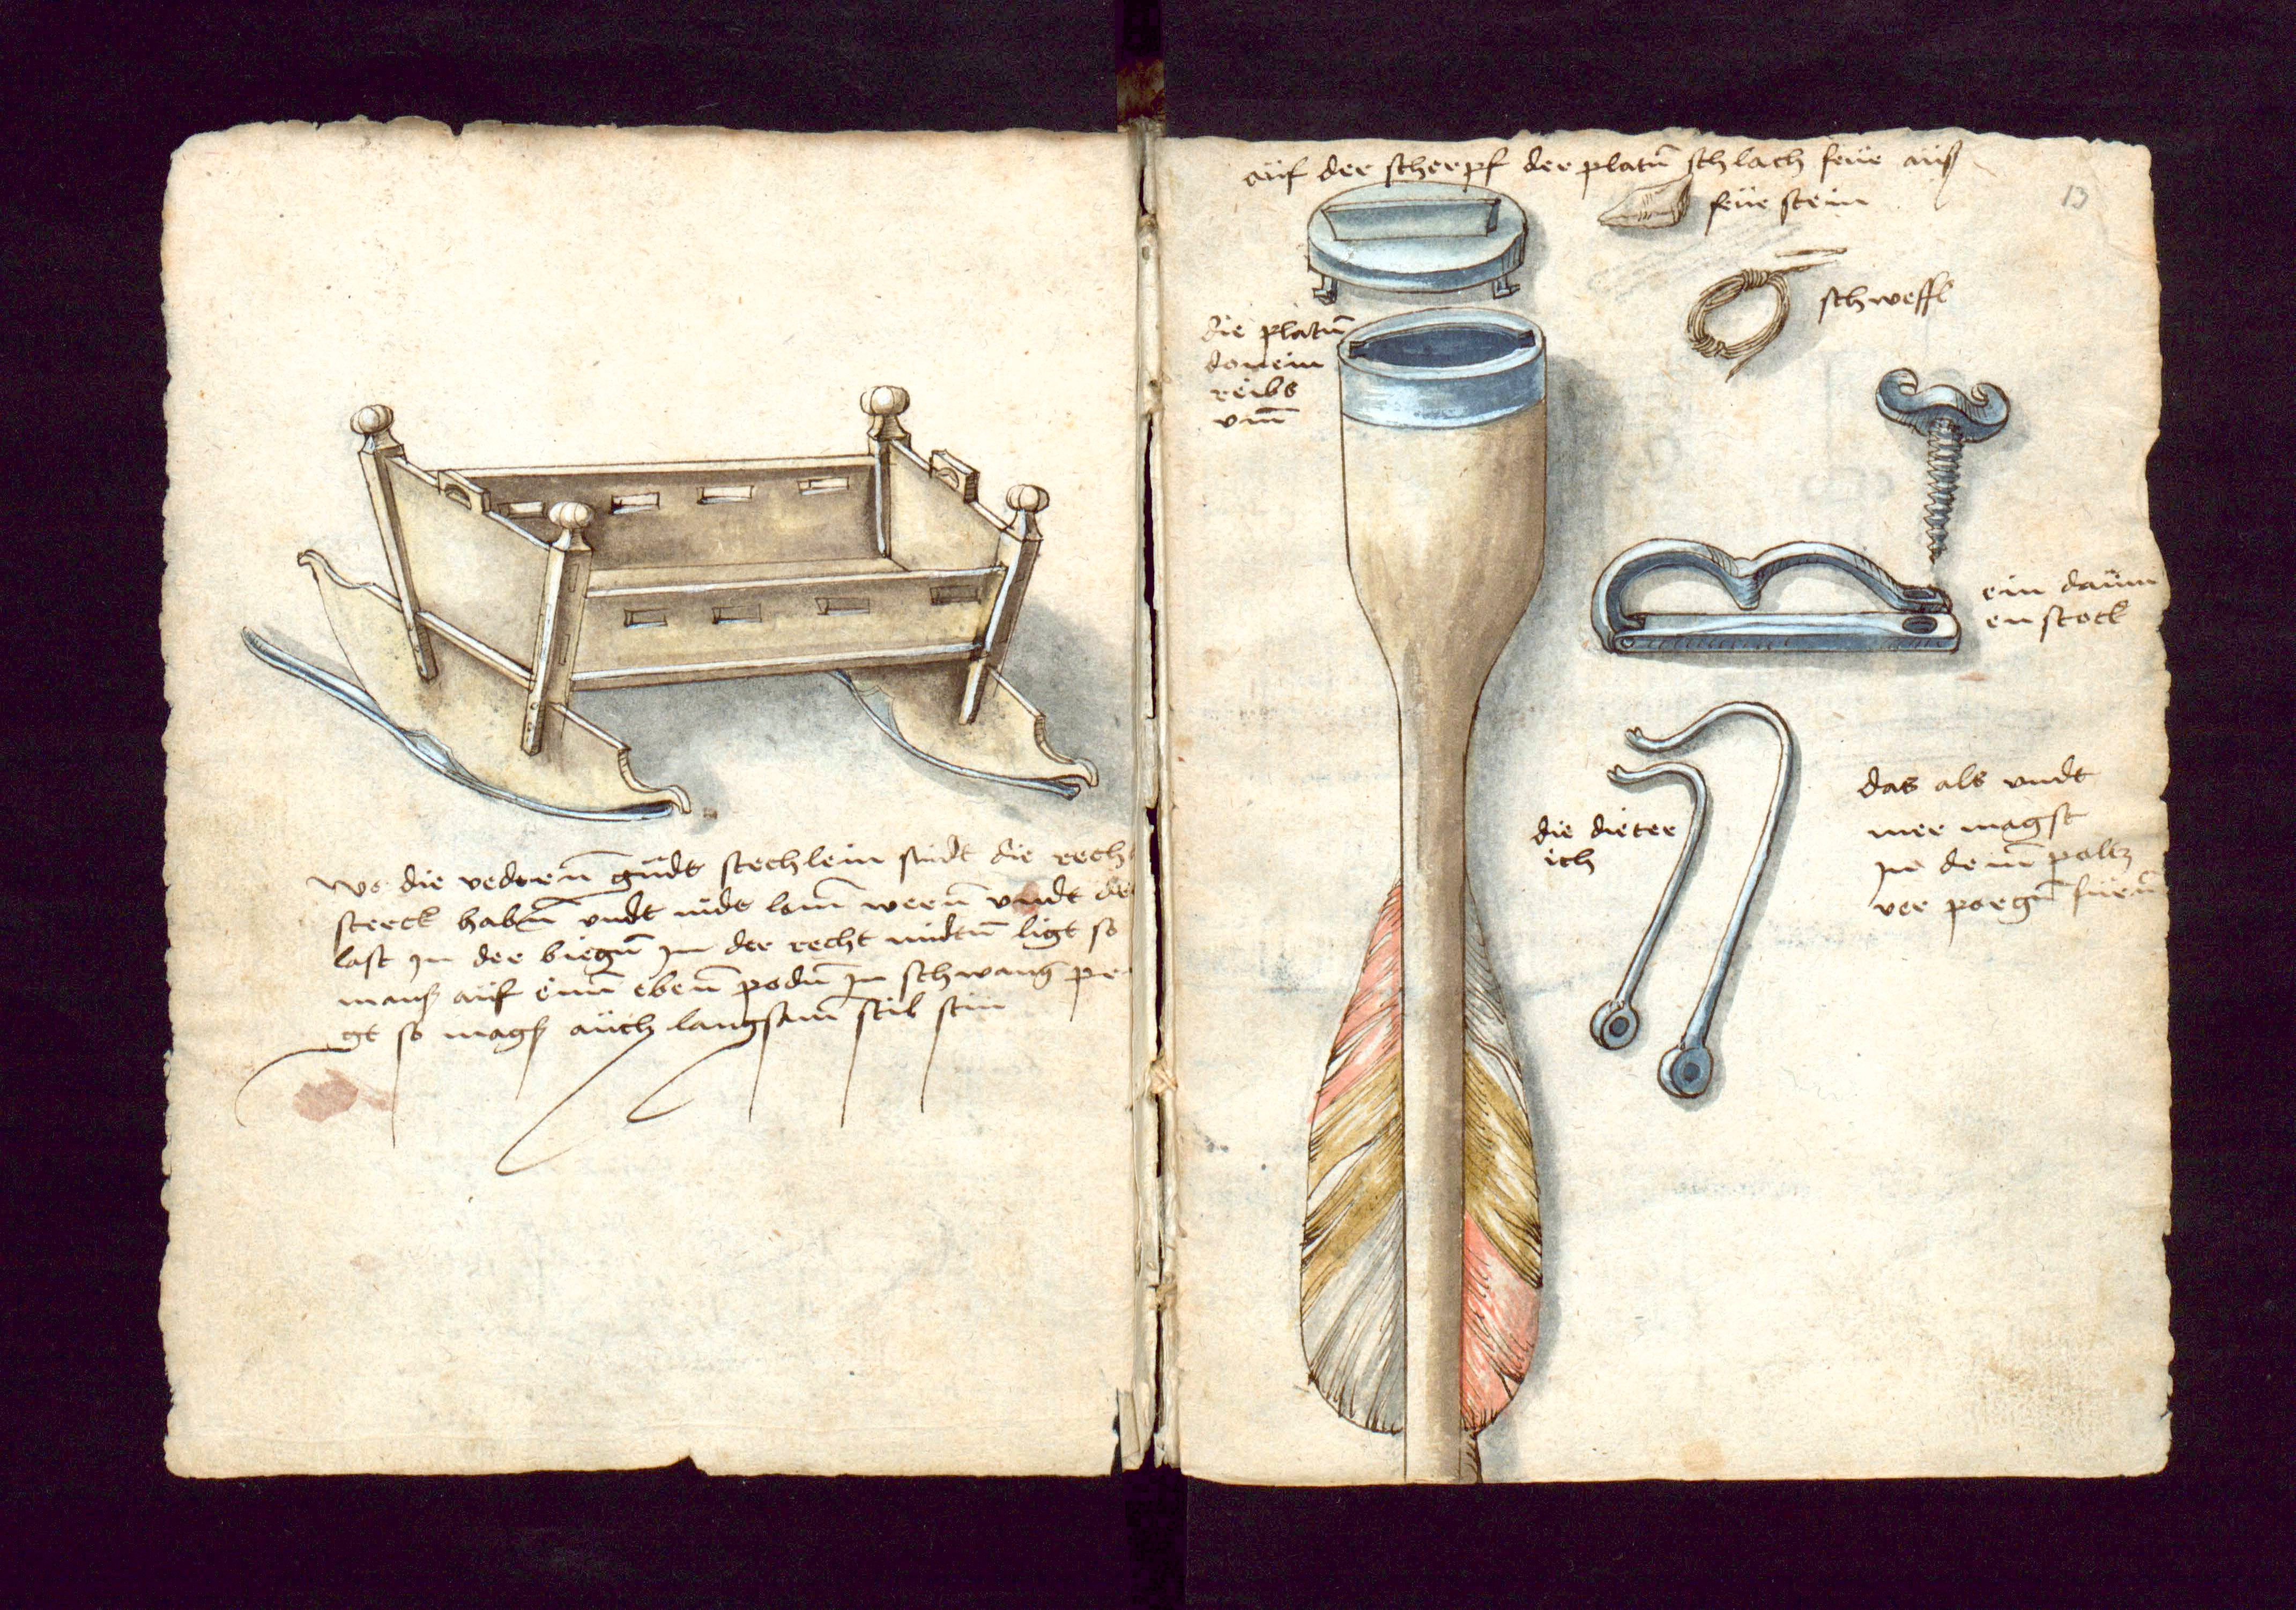 wo die vedrenn güdt stechlein sindt die recht
sterck habnn vndt nidt lamm wernn vndt der
last in der biegnn in der recht midtnn ligt so
manß auf einnn ebenn podnn in schwang pr
gt so magß auch langsamm stil stin
auf der scherpf der platnn schlach feür auß
feürstein
13
schweffl
die platnn
donein
reibs
vmm
ein daüm
en stock
die dieter
ich
das als vndt
mer magst
in deinn poltz
ver porgnn fürnn